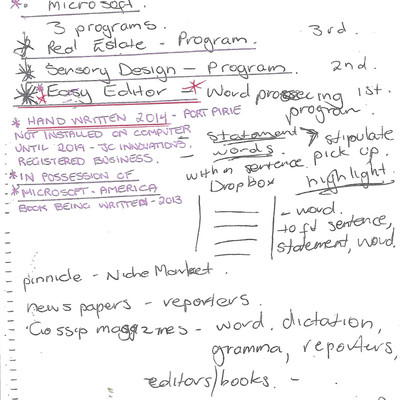 * Microsoft.
3 programs. 3rd.
* Real Estate - Program.
* Sensory Design - Program. 2nd.
* Easy Editor = * Word processing 1st.
program.
* HAND WRITTEN 2014 - PORT PIRIE
NOT INSTALLED ON COMPUTER
UNTIL 2019 - JC INNOVATIONS.
REGISTERED BUSINESS.
* IN POSSESSION OF
* MICROSOFT - AMERICA
BOOK BEING WRITTEN - 2013
- statement → stipulate
- words. pick up.
within sentence highlight.
Dropbox
- word.
to fd sentence,
statement, word.
pinnicle - Niche Market.
news papers - reporters.
Gossip magazines - word. dictation,
gramma, reporters,
editors/books. -